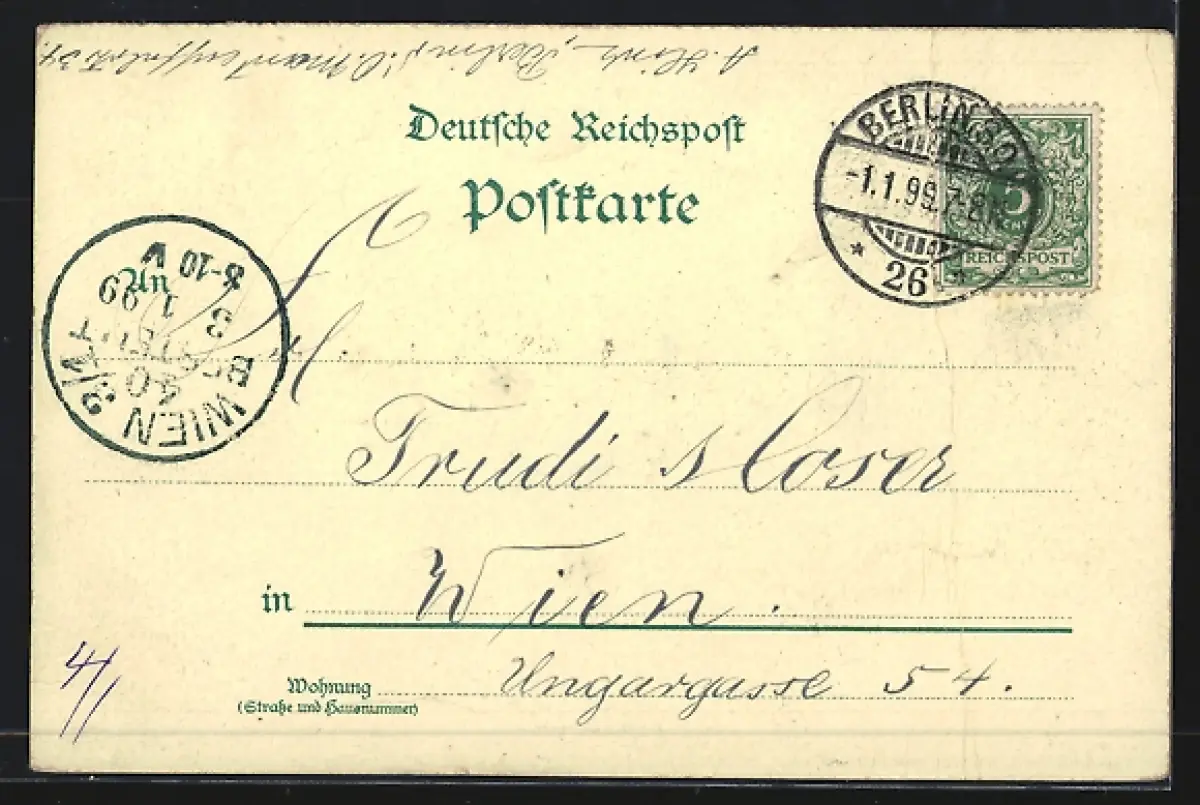 Berlin
Deutsche Reichspost
Postkarte
BERLIN, S.O.
-1.1.99.7-8N.
* 26
5
REICHSPOST
An
WIEN 3/1
40
BESTELLT
3 1 99
8-10 V
Trudi Moser
in Wien.
Wohnung Ungargasse 54.
(Straße und Hausnummer)
4/1